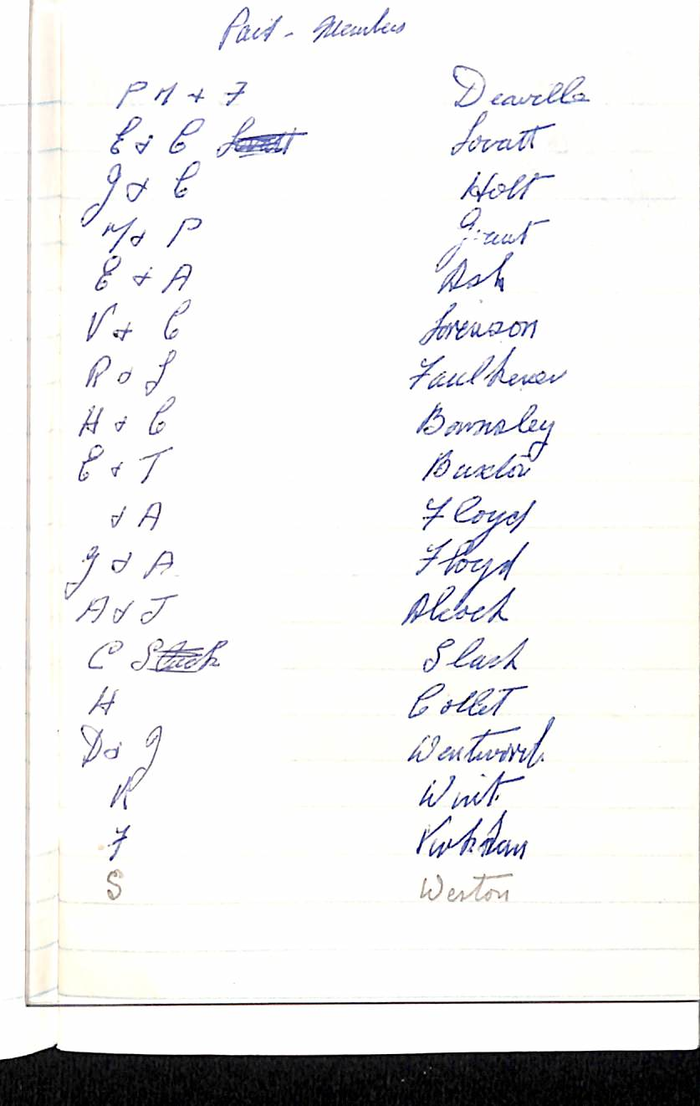 Paid - Members
P M + F Deaville
E & C Lovatt
J & C Holt
M & P Grant
E & A Ash
V & C Sorenson
R & J Faulkener
H & C Barnsley
E & T Buxton
& A Floyd
J & A Floyd
A & J Alcock
C Slack
H Collet
D & J Wentworth
R
F
S Weston